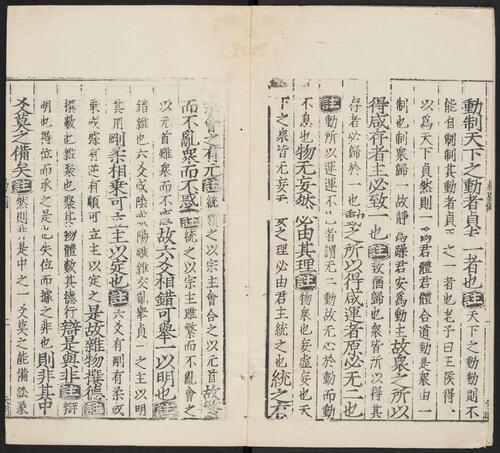 動制天下之動者貞夫一者也註天下之動動則不
能自制制其動者貞之一者也老子曰王侯得
以為天下貞然則一為君體君體合道動是衆由一
制也制衆歸一故靜為躁君安為動主故衆之所以
得咸存者主必致一也註致猶歸也衆皆所以得其
存者必歸於一也動之所以得咸運者原必无二也
註動所以運運不已者謂无二動故无心於動而動
不息也物无妄然必由其理註物衆也妄虛妄也天
下之衆皆无妄无妄之理必由君主統之也統之有
宗會之有元註統之以宗主會之以元首故繁
而不亂衆而不惑註統之以宗主雖繁而不亂會之
以元首雖衆而不惑故六爻相錯可舉一以明也註
錯雜也六爻或陰或陽雖雜交亂舉貞一之主以明
其用剛柔相乗可立主以定也註六爻有剛有柔或
乗或據有逆有順可立主以定之是故雜物撰德註
撰數也雜聚也聚其物體數其德行辯是與非註辯
明也得位而承之是也失位而據之非也則非其中
爻莫之備矣註然則非是中之一爻莫之能備訟彖